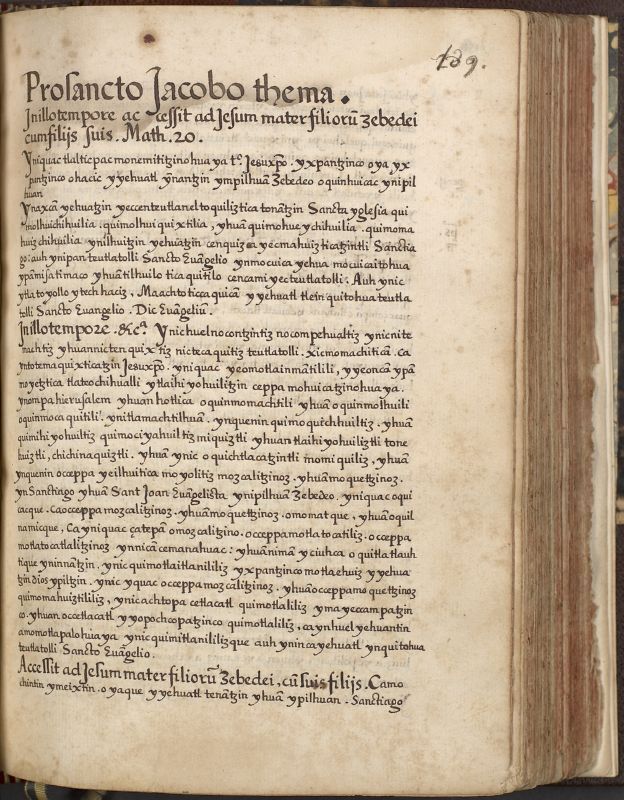 189.
Prosancto Jacobo thema.
Jnillotempore ac cessit ad Jesum mater filiorū Zebedei
cumfilijs suis. Math. 20.
Yniquac tlalticpac monemititzinohuaya tº. Jesuxp̄o. yxpantzinco oyayx
pantzinco ohacic yyehuatl ynantzin ympilhuā Zebedeo oquinhuicac ynipil
huan
Ynaxcā yehuatzin yeccenteutlaneltoquiliztica tonātzin Sancta yglesia qui
molhuichihuilia. quimolhuiquixtilia, yhuā quimohueychihuilia. quimoma
huizchihuilia ynilhuitzin yehuatzin cenquizca yecmahuizticatzintli Sanctia
go: auh ynipan teutlatolli Sancto Euāgelio ynmocuica yehua mocuicaitohua
ypāmisatimaco yhuā tilhuilo tica quitilo cencamiyecteutlatolli. Auh ynic
ytlatoyollo ytech haciz, Maachto ticcaquicā yyehuatl tlein quitohua teutla
tolli Sancto Euangelio. Dic Evagelium̄.
Jnillotempore. &cª. Ynichuelnocontzintiz nocompehualtiz ynicnite
machtiz yhuannicten quixtiz nictecaquitiz teutlatolli. Xicmomachiticā. ca
yntotemaquixticatzin Jesuxp̄o. yniquac yeomotlainmātilili, yyconcā ypā
moyetztica tlateochihualli ytlaihiyohuilitzin ceppa mohuicatzinohuaya.
ynompa hierusalem yhuan hotlica oquinmomachtili yhuā oquinmolhuili
oquinmocaquitili. ynitlamachtilhuā. ynquenin quimoquechhuiltiz. yhuā
quimihiyohuiltiz quimociyahuiltiz miquiztli yhuan tlaihiyohuiliztli tone
huiztli, chichinaquiztli. yhuā ynic oquichtlacatzintli momiquiliz, yhuā
ynquenin occeppa yeilhuitica moyolitiz mozcalitzinoz. yhuāmoquetzinoz.
yn Sanctiago yhuā Sant Joan Euāgelista ynipilhuan Zebedeo. yniquac oqui
cacque. Caocceppa mozcalitzinoz. yhuāmoquetzinoz. omomatque, yhuāoquil
namicque. Ca yniquac çatepā omozcalitzino. occeppa motlatocatiliz. occeppa
motlatocatlalitzinoz ynnicā cemanahuac: yhuānimā yciuhca oquitlatlauh
tique yninnātzin. ynic quimotlaitlanililiz yxpantzinco motlaehuiz yyehua
tzin dios ypiltzin. ynic yquac occeppa mozcalitzinoz. yhuāocceppamoquetzinoz
quimomahuiztililiz, ynic achtopa cetlacatl quimotlaliliz ymayeccampatzin
co. yhuan occetlacatl yyopochcopatzinco quimotlaliliz, caynhuel yehuantin
amomotlapalohuaya ynic quimitlanililizque auh ynin ca yehuatl ynquitohua
teutlatolli Sancto Euāgelio.
Accessit ad Jesum mater filiorū Zebedei, cū suis filijs. Camo
chintin ymeixtin. oyaque yyehuatl tenātzin yhuā ypilhuan. Sanctiago